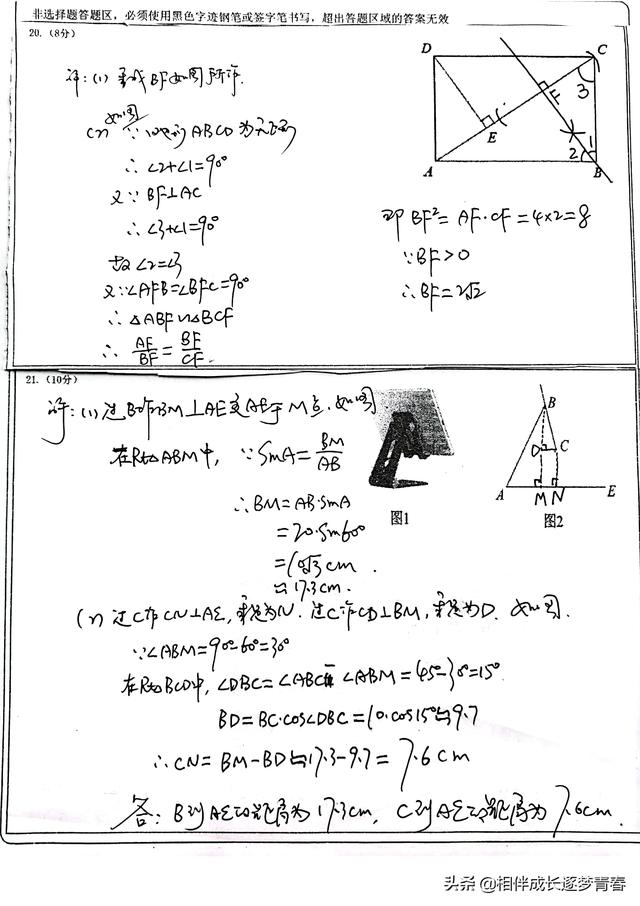 非选择题答题区，必须使用黑色字迹钢笔或签字笔书写，超出答题区域的答案无效
20.（8分）
D
C
F
3
E
A
2
1
B
解:(1) 垂线BF如图所示.
(2) 如图
∵四边形ABCD为矩形
∴∠2+∠1=90°
又∵BF⊥AC
∴∠3+∠1=90°
故∠2=∠3
又∵∠AFB=∠BFC=90°
∴△ABF∽△BCF
∴ AF/BF = BF/CF.
即BF²=AF·CF=4×2=8
∵BF>0
∴BF=2√2
21.（10分）
解:(1)过B作BM⊥AE交AE于M点.如图
在Rt△ABM中, ∵SinA=BM/AB
∴BM=AB·sinA
=20·sin60°
=10√3cm.
≈17.3cm.
图1
B
D
C
A
M
N
E
图2
(2)过C作CN⊥AE,垂足为N.过C作CD⊥BM,垂足为D.如图.
∵∠ABM=90°-60°=30°
在Rt△BCD中,∠DBC=∠ABC-∠ABM=45°-30°=15°
BD=BC·cos∠DBC=10.cos15°≈9.7
∴CN=BM-BD≈17.3-9.7=7.6cm
答:B到AE的距离为17.3cm, C到AE的距离为7.6cm.
头条@相伴成长逐梦青春